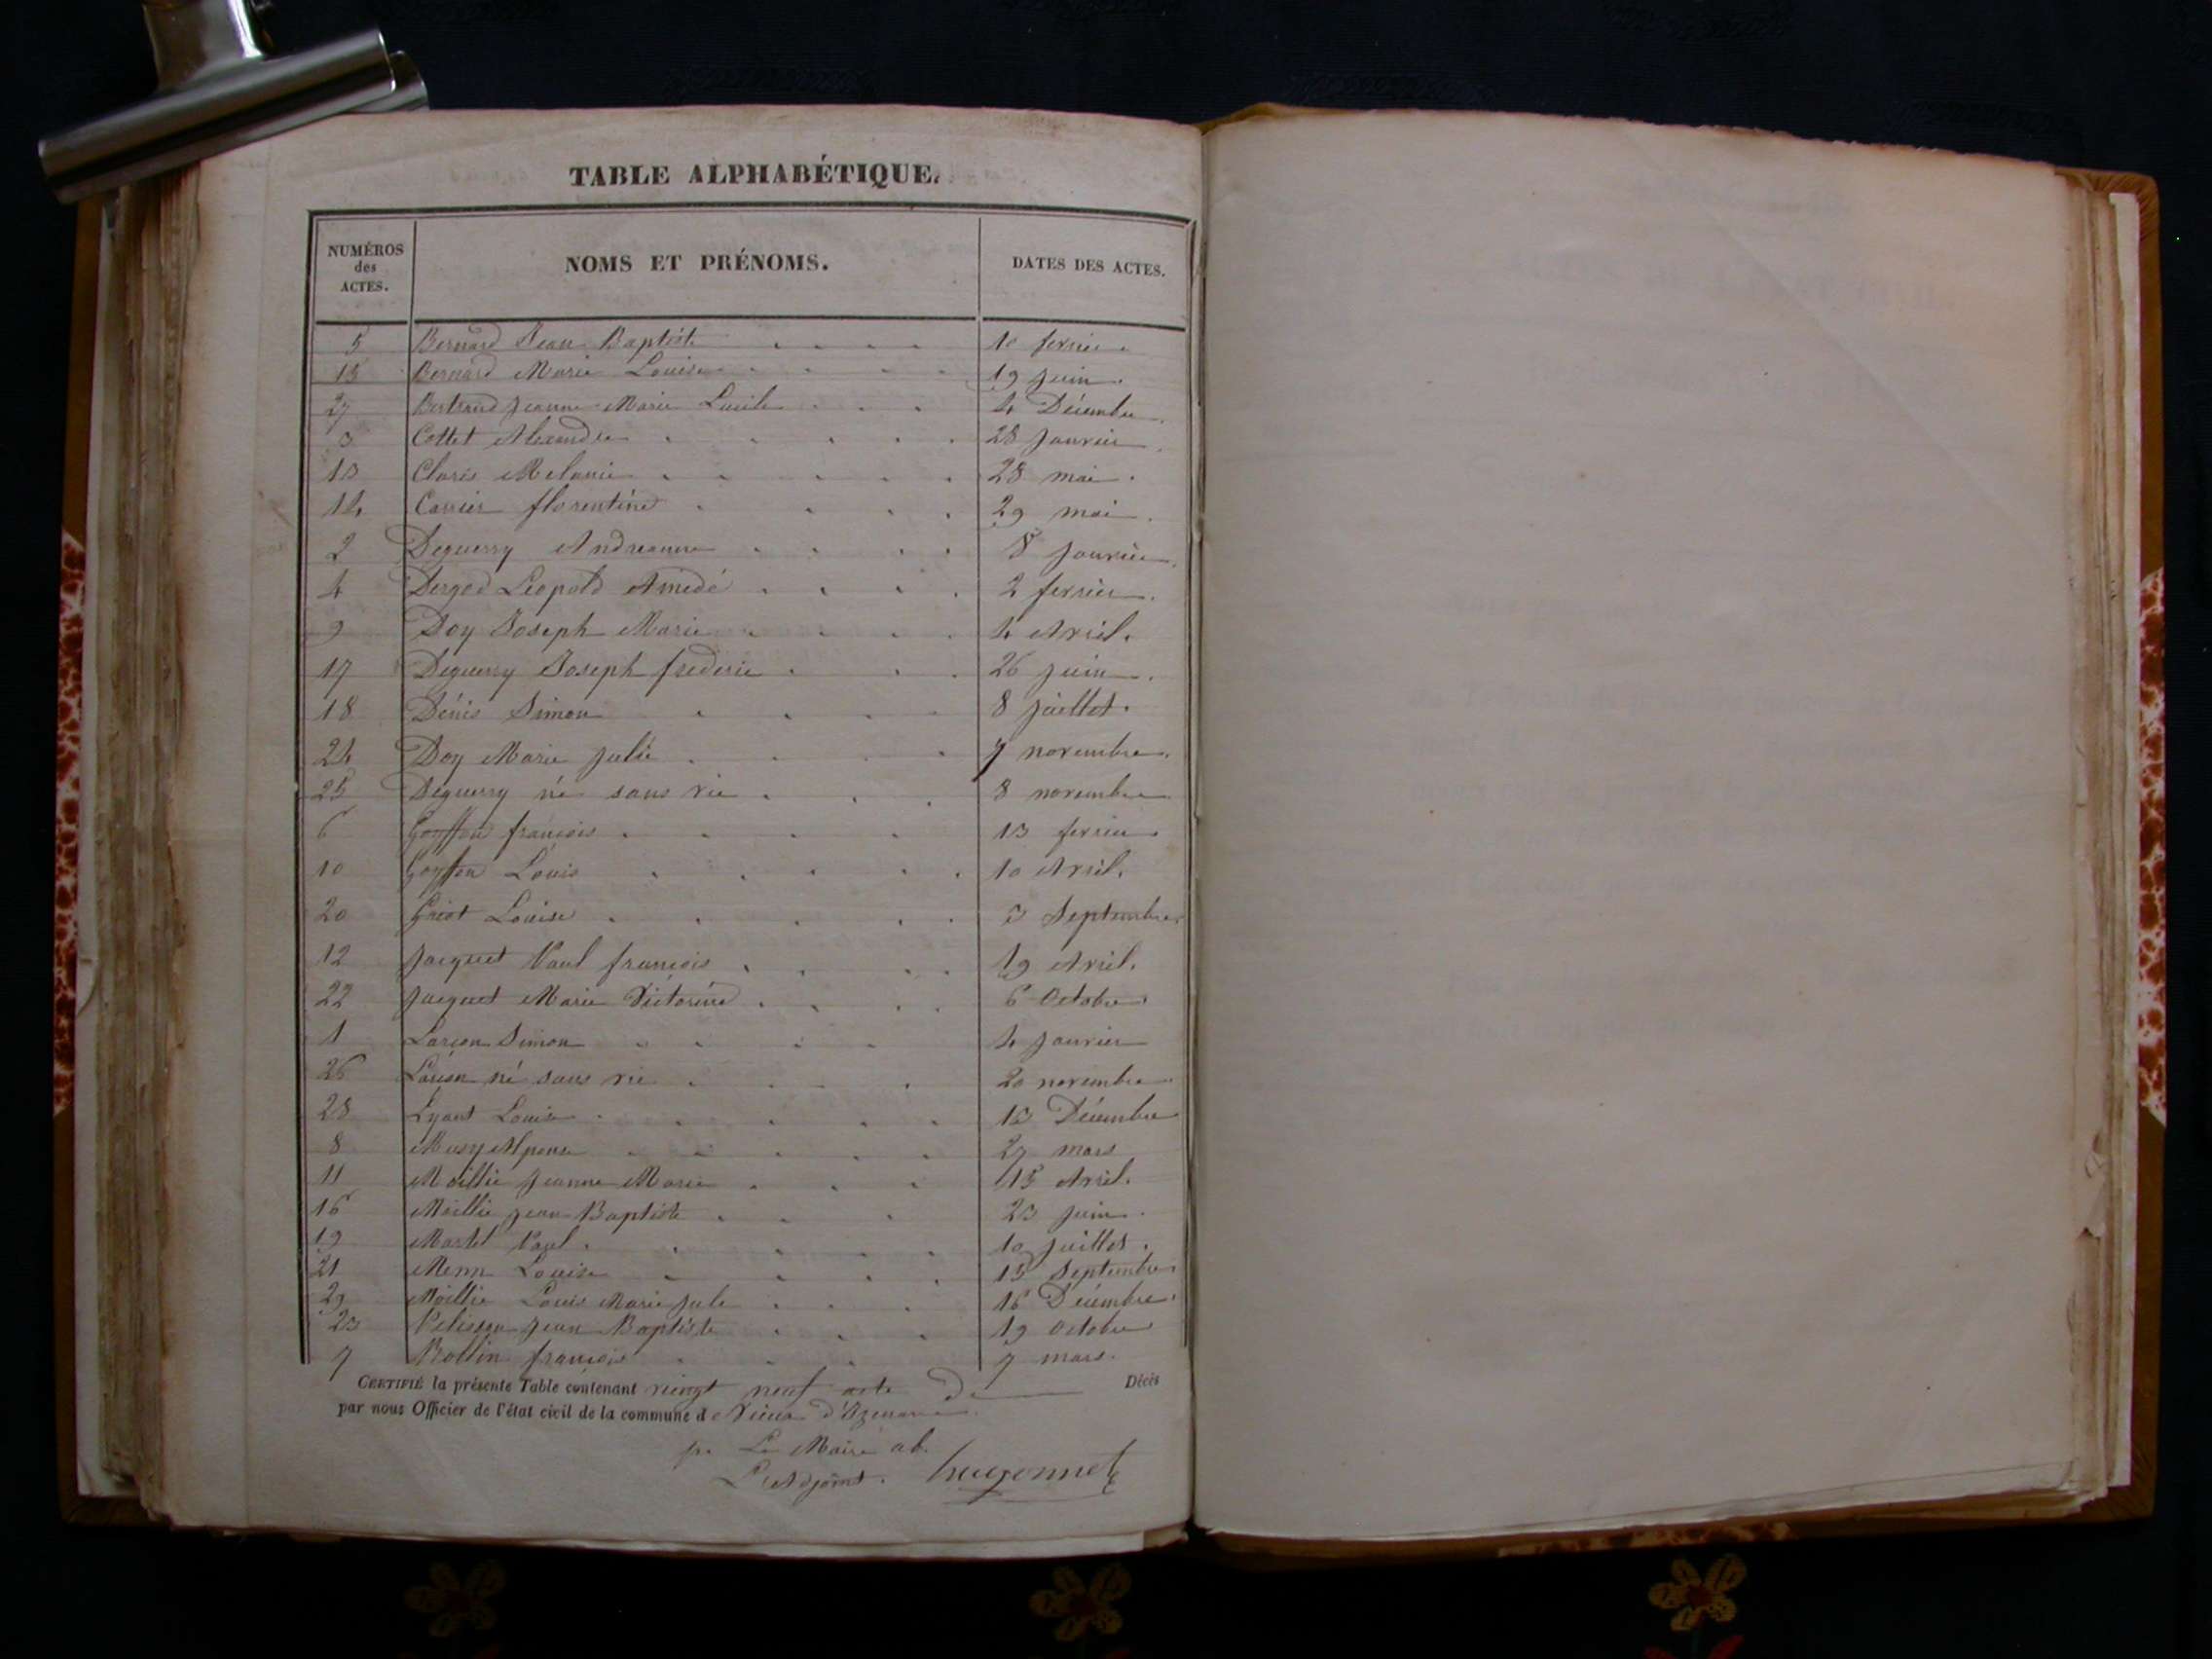 TABLE ALPHABÉTIQUE.
NUMÉROS des ACTES. NOMS ET PRÉNOMS. DATES DES ACTES.
5 Bernard Jean Baptiste 10 fevrier
15 Bernard Marie Louise 19 juin
27 Bertrand Jeanne Marie Lucile 4 Décembre
3 Cottet Alexandre 28 Janvier
13 Claris Melanie 28 mai
14 Carrier florentine 29 mai
2 Deguerry Andreanne 8 Janvier
4 Derged Léopold Amédé 2 fevrier
9 Doy Joseph Marie 4 Avril
17 Deguerry Joseph frederic 26 juin
18 Dénis Simon 8 juillet
24 Doy Marie Julie 7 novembre
25 Deguerry né sans vie 8 novembre
6 Goyffon françois 13 fevrier
10 Goyffon Louis 10 Avril
20 Griot Louise 3 Septembre
12 Jacquet Paul françois 19 Avril
22 Jacquet Marie Victorine 6 Octobre
1 Larçon Simon 4 Janvier
26 né sans vie 20 novembre
28 Lyant Louise 13 Décembre
8 Musy Alponse 27 mars
11 Maillie Jeanne Marie 15 Avril
16 Maillie Jean Baptiste 23 juin
19 Martel Paul 10 juillet
21 Menn Louise 15 Septembre
29 Maillie Louis Marie Jule 16 Décembre
23 Pelisson Jean Baptiste 19 Octobre
7 Rollin françois 7 mars
CERTIFIÉ la présente Table contenant vingt neuf acte de Décès
par nous Officier de l'état civil de la commune de Vieux d'Izenave
pr Le Maire ab.
L'Adjoint. hugonnet